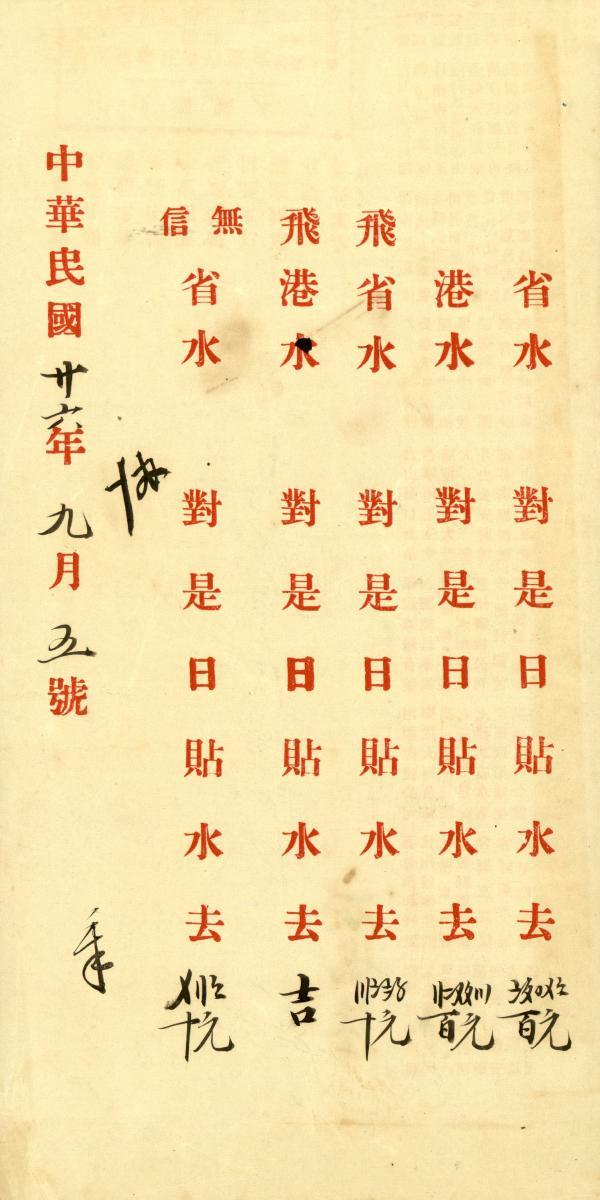 省水 對是日貼水去 百元
港水 對是日貼水去 百元
飛省水 對是日貼水去 十元
飛港水 對是日貼水去 吉
無信省水 對是日貼水去 十元
中華民國廿六年九月五號